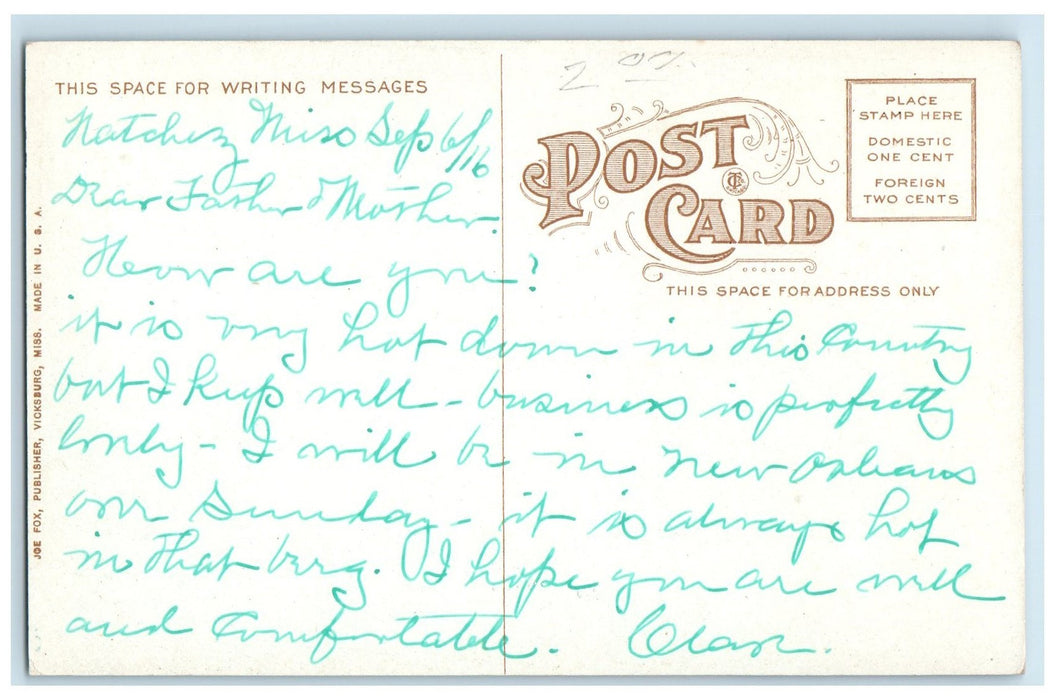 THIS SPACE FOR WRITING MESSAGES
POST CARD
PLACE
STAMP HERE
DOMESTIC
ONE CENT
FOREIGN
TWO CENTS
THIS SPACE FOR ADDRESS ONLY
JOE FOX, PUBLISHER, VICKSBURG, MISS. MADE IN U. S. A.
Natchez Miss Sep 6/16
Dear Father & Mother.
How are you?
it is very hot down in this Country
but I keep well - business is perfectly
lovely - I will be in New Orleans
over Sunday - it is always hot
in that berg. I hope you are well
and Comfortable.